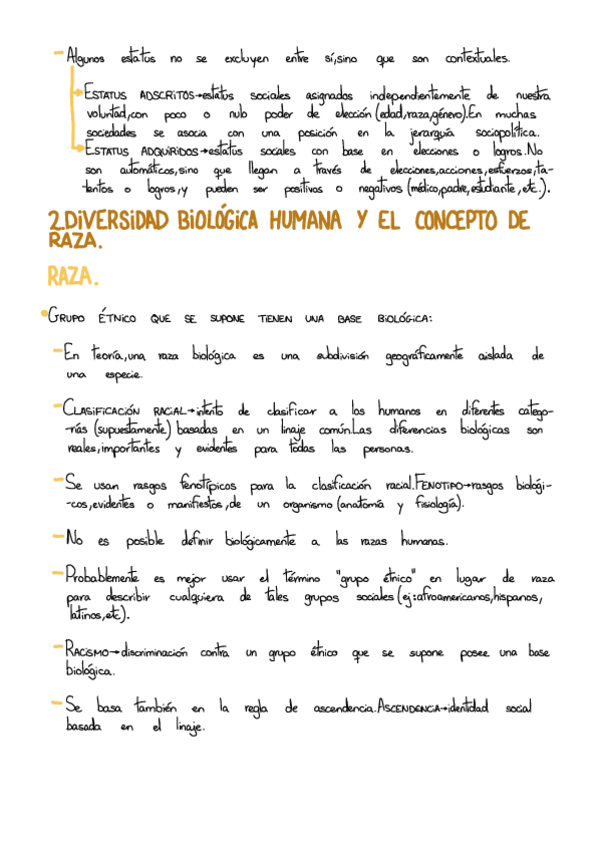 -Algunos estatus no se excluyen entre sí,sino que son contextuales.
ESTATUS ADSCRITOS→estatus sociales asignados independientemente de nuestra
voluntad,con poco o nulo poder de elección(edad,raza,género).En muchas
sociedades se asocia con una posición en la jerarquía sociopolítica.
ESTATUS ADQUIRIDOS→estatus sociales con base en elecciones o logros.No
son automáticos,sino que llegan a través de elecciones,acciones,esfuerzos,ta-
-lentos o logros,y pueden ser positivos o negativos (médico,padre,estudiante,etc.).
2.DIVERSIDAD BIOLÓGICA HUMANA Y EL CONCEPTO DE
RAZA.
RAZA.
•GRUPO ÉTNICO QUE SE SUPONE TIENEN UNA BASE BIOLÓGICA:
-En teoría,una raza biológica es una subdivisión geográficamente aislada de
una especie.
-CLASIFICACIÓN RACIAL→intento de clasificar a los humanos en diferentes catego-
-rías (supuestamente) basadas en un linaje común.Las diferencias biológicas son
reales,importantes y evidentes para todas las personas.
-Se usan rasgos fenotípicos para la clasificación racial.FENOTIPO→rasgos biológi-
-cos,evidentes o manifiestos,de un organismo (anatomía y fisiología).
-No es posible definir biológicamente a las razas humanas.
-Probablemente es mejor usar el término "grupo étnico" en lugar de raza
para describir cualquiera de tales grupos sociales (ej:afroamericanos,hispanos,
latinos,etc).
-RACISMO→discriminación contra un grupo étnico que se supone posee una base
biológica.
-Se basa también en la regla de ascendencia.ASCENDENCIA→identidad social
basada en el linaje.